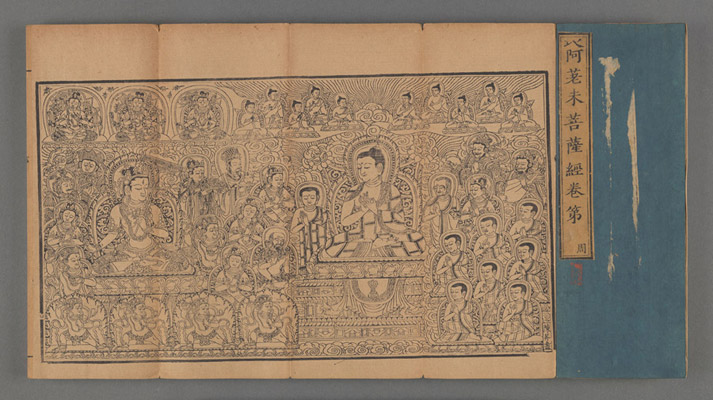 阿差末菩薩經卷第
周